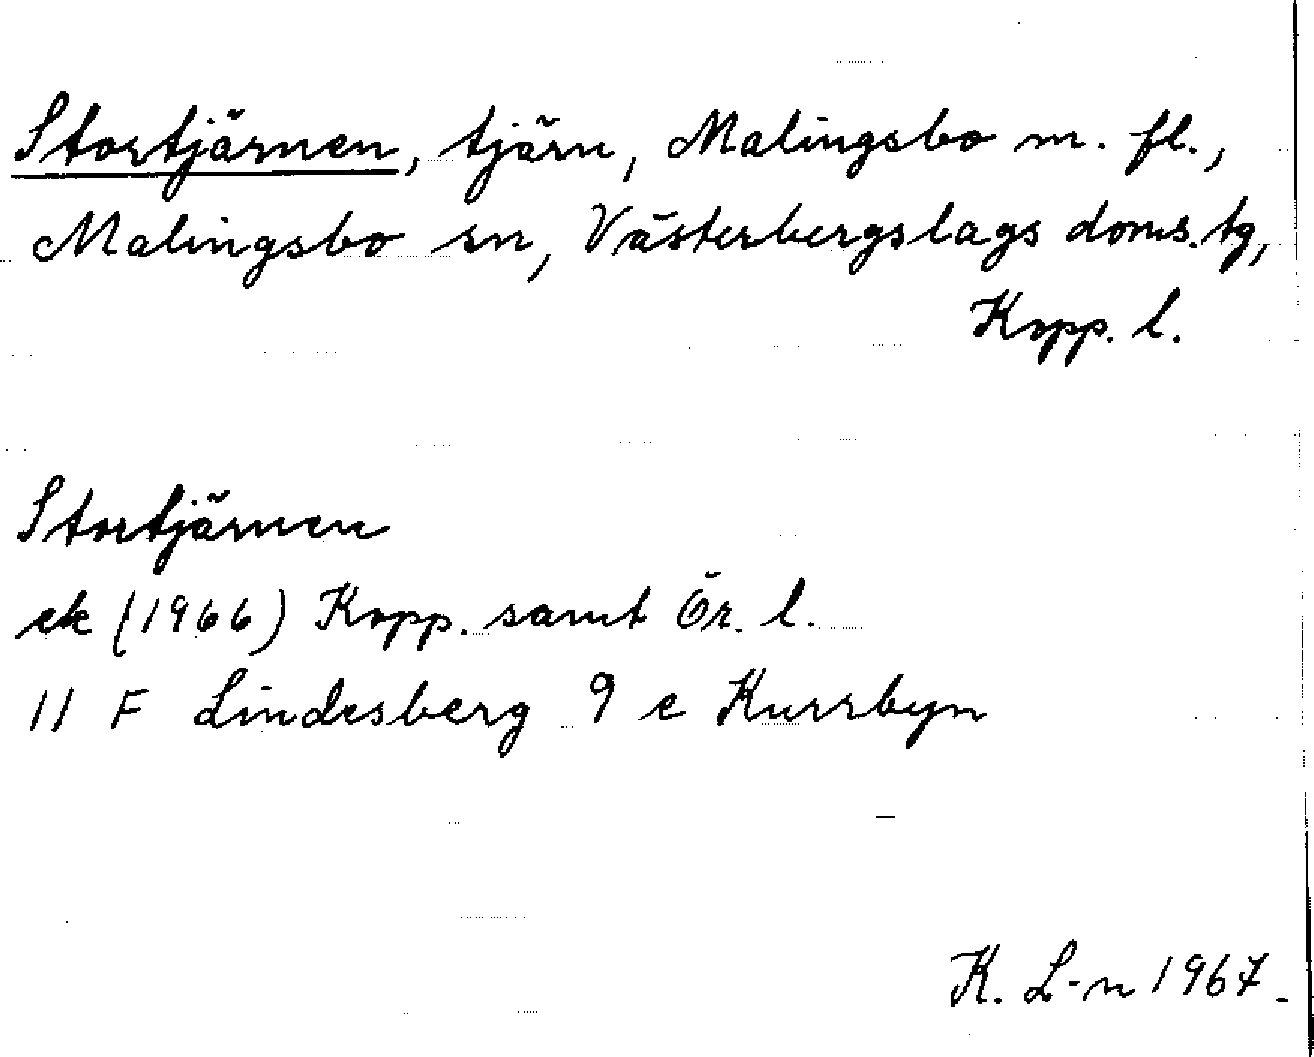 Stortjärnen, tjärn, Malingsbo m. fl.,
Malingsbo sn, Västerbergslags doms.tg,
Kopp. l.
Stortjärnen
ek (1966) Kopp. samt Ör. l.
11 F Lindesberg 9 e Kurrbyn
K. L-n 1967.